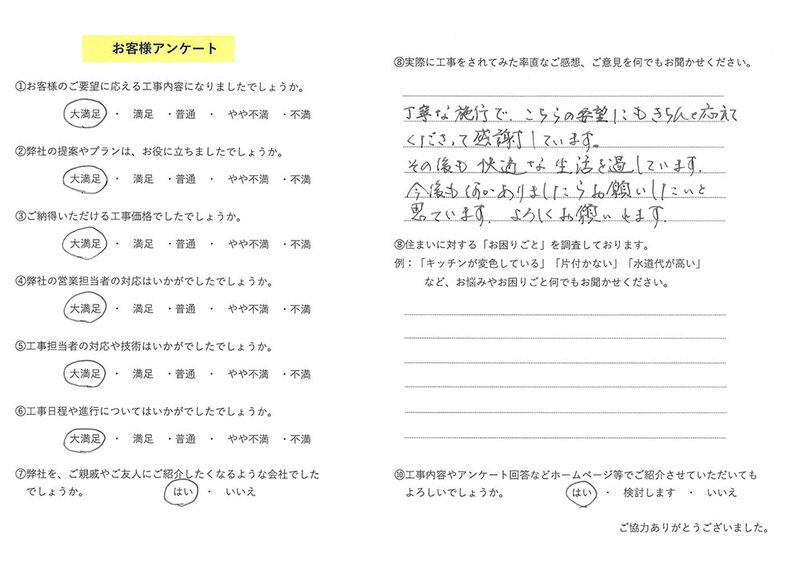 お客様アンケート
①お客様のご要望に応える工事内容になりましたでしょうか。
大満足 ・ 満足 ・普通 ・ やや不満 ・不満
②弊社の提案やプランは、お役に立ちましたでしょうか。
大満足 ・ 満足 ・普通 ・ やや不満 ・不満
③ご納得いただける工事価格でしたでしょうか。
大満足 ・ 満足 ・普通 ・ やや不満 ・不満
④弊社の営業担当者の対応はいかがでしたでしょうか。
大満足 ・ 満足 ・普通 ・ やや不満 ・不満
⑤工事担当者の対応や技術はいかがでしたでしょうか。
大満足 ・ 満足 ・普通 ・ やや不満 ・不満
⑥工事日程や進行についてはいかがでしたでしょうか。
大満足 ・ 満足 ・普通 ・ やや不満 ・不満
⑦弊社を、ご親戚やご友人にご紹介したくなるような会社でした
でしょうか。 はい ・ いいえ
⑧実際に工事をされてみた率直なご感想、ご意見を何でもお聞かせください。
丁寧な施行で、こちらの要望にもきちんと応えて
くださって感謝しています。
その後も快適な生活を過しています。
今後も何かありましたらお願いしたいと
思ています。よろしくお願いします。
⑧住まいに対する「お困りごと」を調査しております。
例：「キッチンが変色している」「片付かない」「水道代が高い」
など、お悩みやお困りごと何でもお聞かせください。
⑩工事内容やアンケート回答などホームページ等でご紹介させていただいても
よろしいでしょうか。 はい ・ 検討します ・ いいえ
ご協力ありがとうございました。